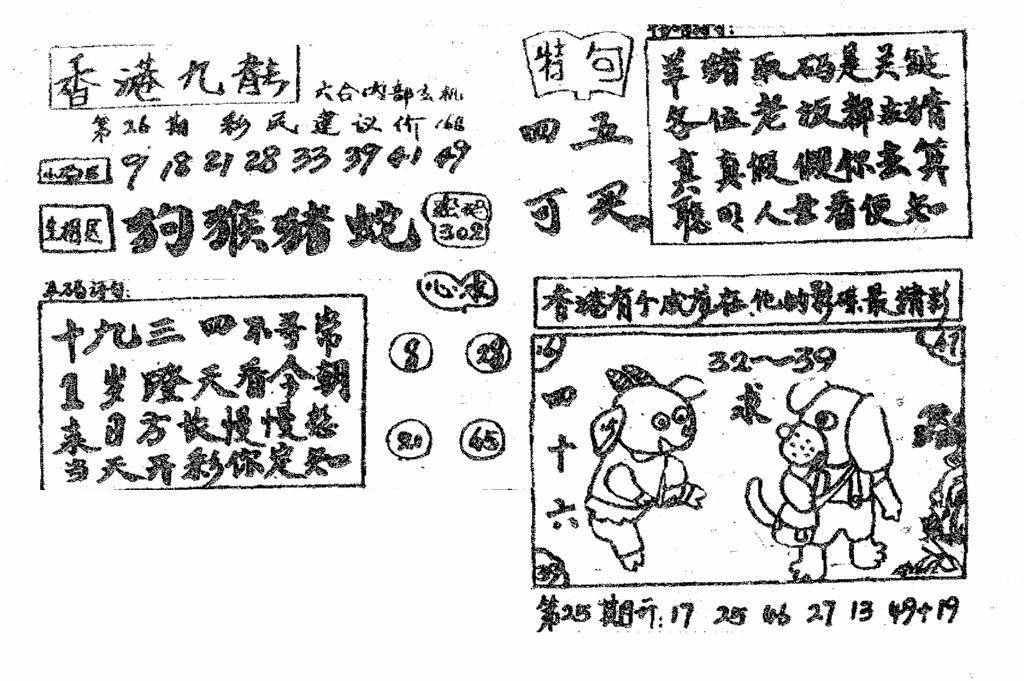 香港九龍
六合内部玄机
第26期 彩民建议价168
9 18 21 28 33 39 41 49
生相区
狗猴猪蛇
密码
302
特句
四五
可买
羊猪取码是关键
各位老板都在猜
真真假假你去算
聪明人士看便知
心水
十九三四不寻常
1岁瞪天看今朝
来日方长慢慢想
当天开彩你定知
8
28
20
45
香港有个成龙在他的影碟最精彩
32～39
求
四十六
第25期开:17 25 46 27 13 49+19